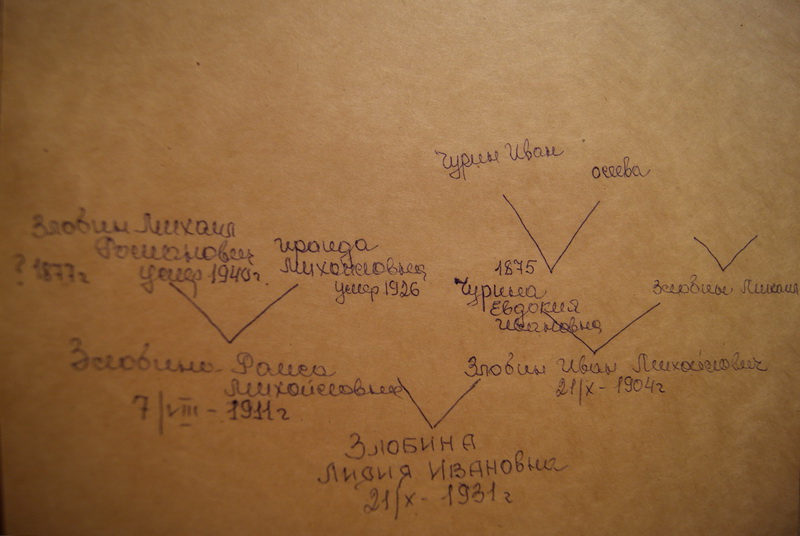 Чурин Иван
осеева
Злобин Михаил
Романович
? 1877г умер 1940г.
Ираида
Михайловна
умер 1926
1875
Чурина
Евдокия
Ивановна
Злобин Михаил
Злобина Раиса
Михайловна
7/VIII - 1911г
Злобин Иван Михайлович
21/X - 1904г
ЗЛОБИНА
ЛИДИЯ ИВАНОВНА
21/X - 1931г